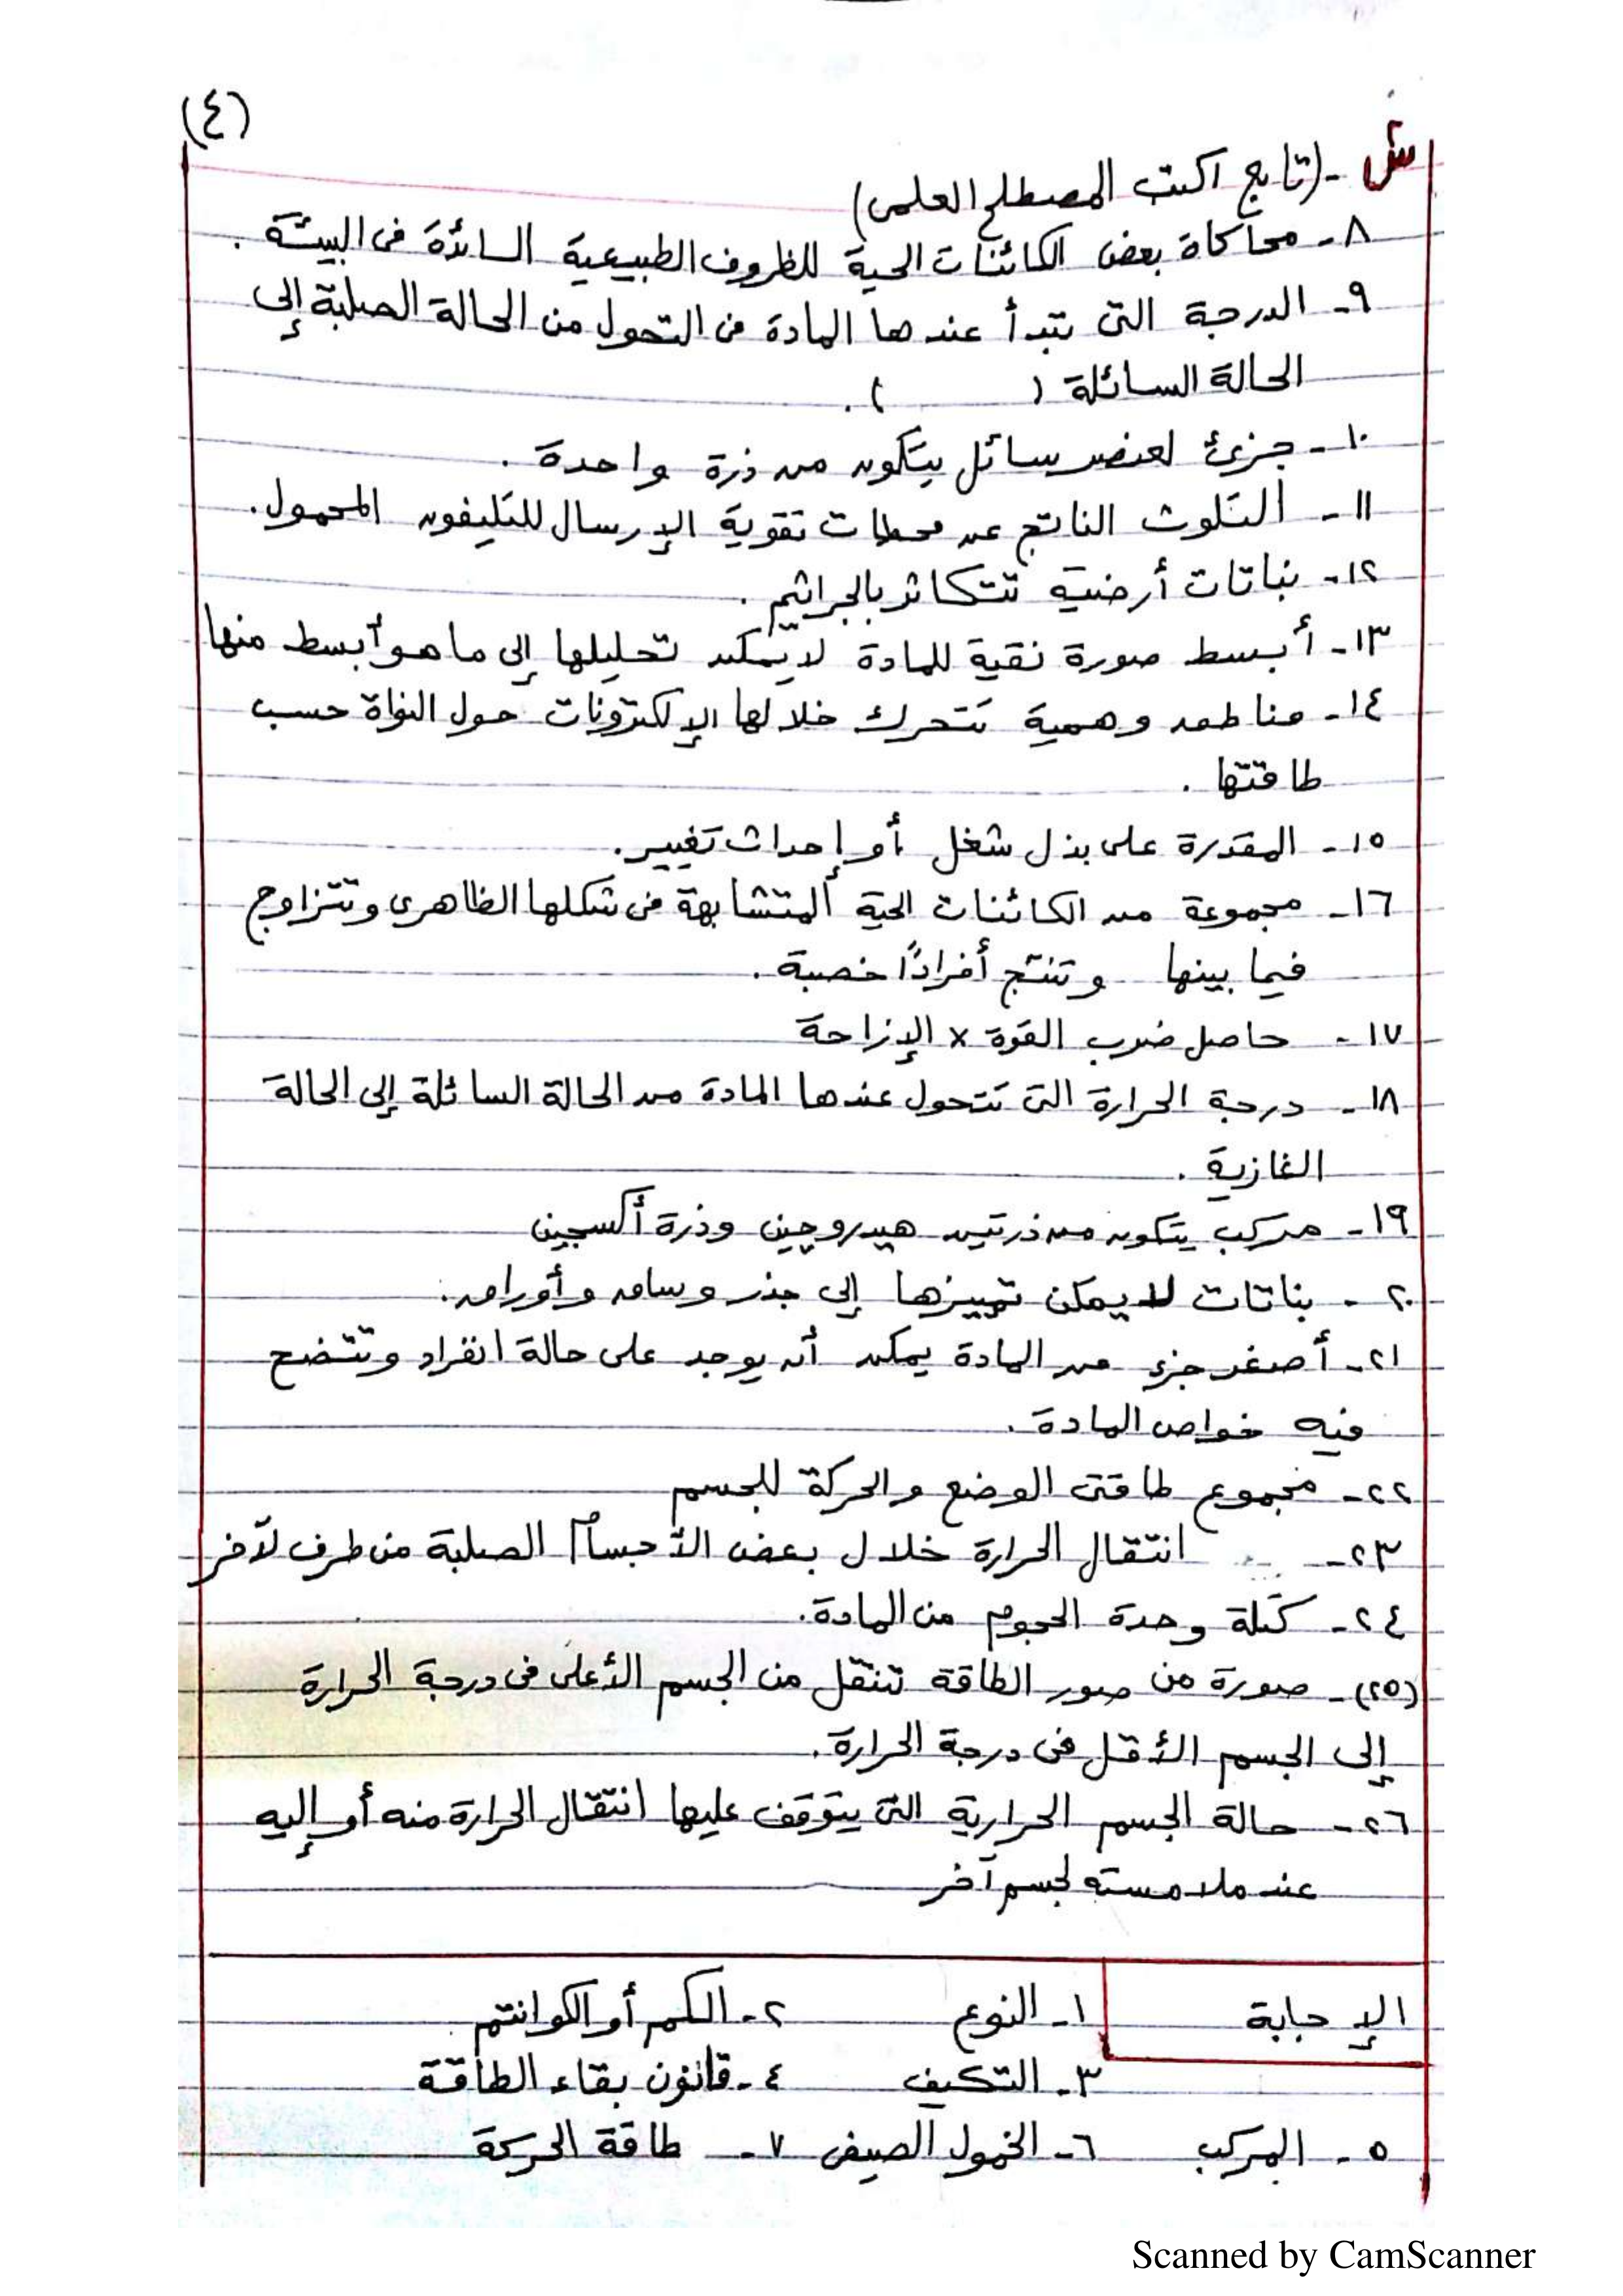 (٤)
س٢ - (تابع اكتب المصطلح العلمى)
٨- محاكاة بعض الكائنات الحية للظروف الطبيعية السائدة فى البيئة .
٩- الدرجة التى تبدأ عندها المادة فى التحول من الحالة الصلبة إلى
الحالة السائلة ( ) .
١٠- جزئ لعنصر سائل يتكون من ذرة واحدة .
١١- التلوث الناتج عن محطات تقوية الإرسال للتليفون المحمول .
١٢- نباتات أرضية تتكاثر بالجراثيم .
١٣- أبسط صورة نقية للمادة لا يمكن تحليلها إلى ما هو أبسط منها
١٤- مناطق وهمية تتحرك خلالها الإلكترونات حول النواة حسب
طاقتها .
١٥- المقدرة على بذل شغل أو إحداث تغيير .
١٦- مجموعة من الكائنات الحية المتشابهة فى شكلها الظاهرى وتتزاوج
فيما بينها وتنتج أفرادًا خصبة .
١٧- حاصل ضرب القوة × الإزاحة
١٨- درجة الحرارة التى تتحول عندها المادة من الحالة السائلة إلى الحالة
الغازية .
١٩- مركب يتكون من ذرتين هيدروچين وذرة أكسجين
٢٠- نباتات لا يمكن تمييزها إلى جذر وساق وأوراق .
٢١- أصغر جزء من المادة يمكن أن يوجد على حالة انفراد وتتضح
فيه خواص المادة .
٢٢- مجموع طاقتى الوضع والحركة للجسم
٢٣- انتقال الحرارة خلال بعض الأجسام الصلبة من طرف لآخر
٢٤- كتلة وحدة الحجوم من المادة .
(٢٥)- صورة من صور الطاقة تنتقل من الجسم الأعلى فى درجة الحرارة
إلى الجسم الأقل فى درجة الحرارة .
٢٦- حالة الجسم الحرارية التى يتوقف عليها انتقال الحرارة منه أو إليه
عند ملامسته لجسم آخر
الإجابة ١- النوع ٢- الكم أو الكوانتم
٣- التكيف ٤- قانون بقاء الطاقة
٥- المركب ٦- الخمول الصيفى ٧- طاقة الحركة
Scanned by CamScanner